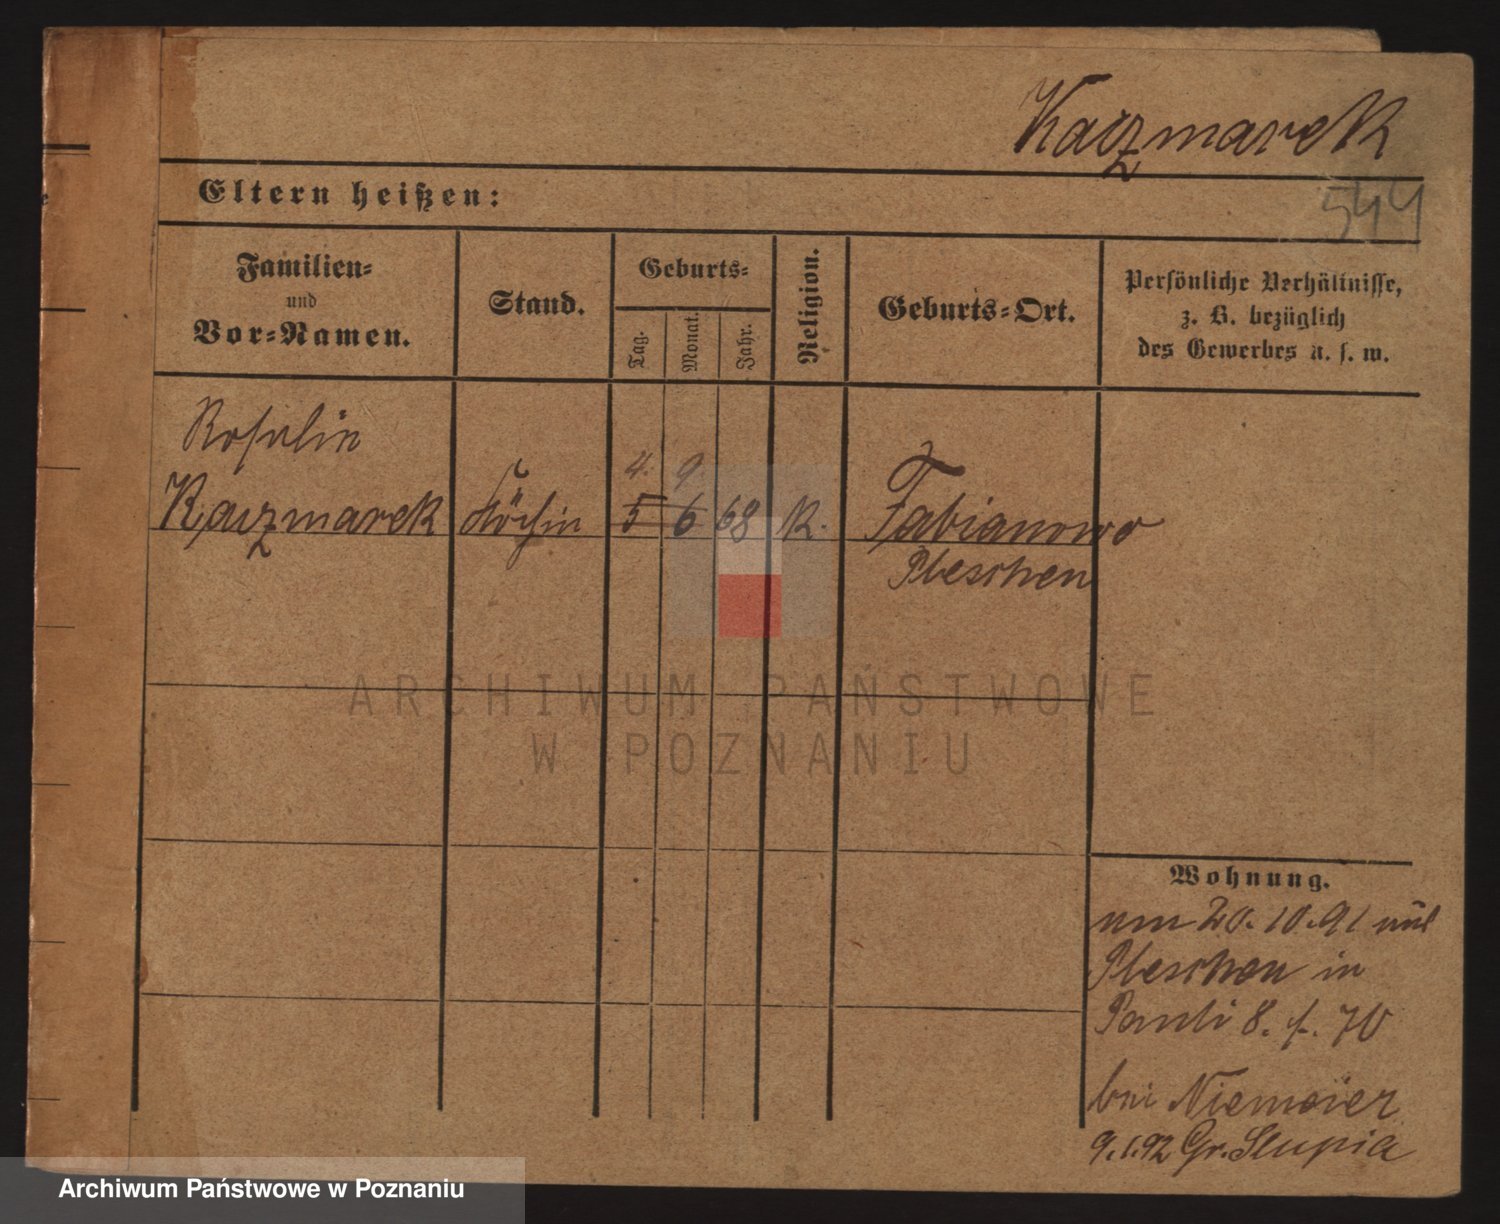 Kaczmarek
544
Eltern heißen:
Familien-
und
Vor-Namen.
Stand.
Geburts-
Tag.
Monat.
Jahr.
Religion.
Geburts-Ort.
Persönliche Verhältnisse,
z. B. bezüglich
des Gewerbes u. s. w.
Rosalie
Kaczmarek
Köchin
4. 9.
5 6 68
K.
Fabianowo
Pleschen
Wohnung.
am 20.10.91 aus
Pleschen in
Pauli 8. f. 70
bei Niemeier
9.1.92 Gr. Slupia
ARCHIWUM PAŃSTWOWE
W POZNANIU
Archiwum Państwowe w Poznaniu